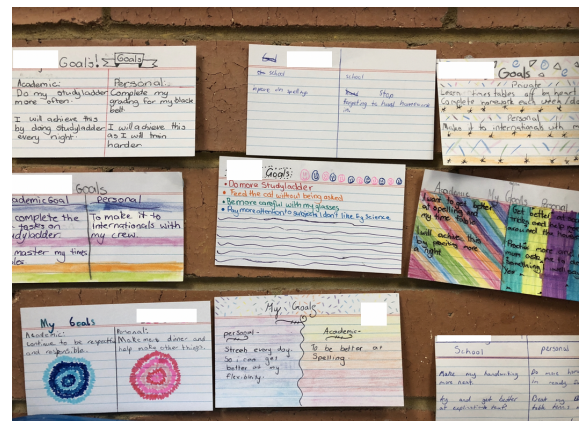 Goals! Goals
Academic:
Do my studyladder
more often.
I will achieve this
by doing studyladder
every night.
Personal:
Complete my
grading for my black
belt.
I will achieve this
as I will train
harden
Goal
school
spelling
school
Stop
forgetting to hand homework
in
Goals
Private
Learn times tables off by heart
Complete homework each week
Personal
Make it to internationals with
Goals
ademic Goal
complete the
tasks on
dyladder.
master my times
les
Personal
To make it to
Internationals with
my crew.
Goals:
• Do more Studyladder
• Feed the cat without being asked
• Be more careful with my glasses
• Pay more attention to subjects I don't like Eg Science
Academic Goals Personal
I want to get better
at spelling and
my time tables
I will achive this
by practing more
Get better
My Goals
Academic:
continue to be respect
and responsible.
Personal:
Make more dinner and
help make other things.
My Goals
personal-
Streach every day.
So i can get
better at my
flexibility.
Academic-
To be better at
Spelling.
School
Make my handwriting
more neat.
Try and get better
at
personal
Do more
in ready
Beat my
table